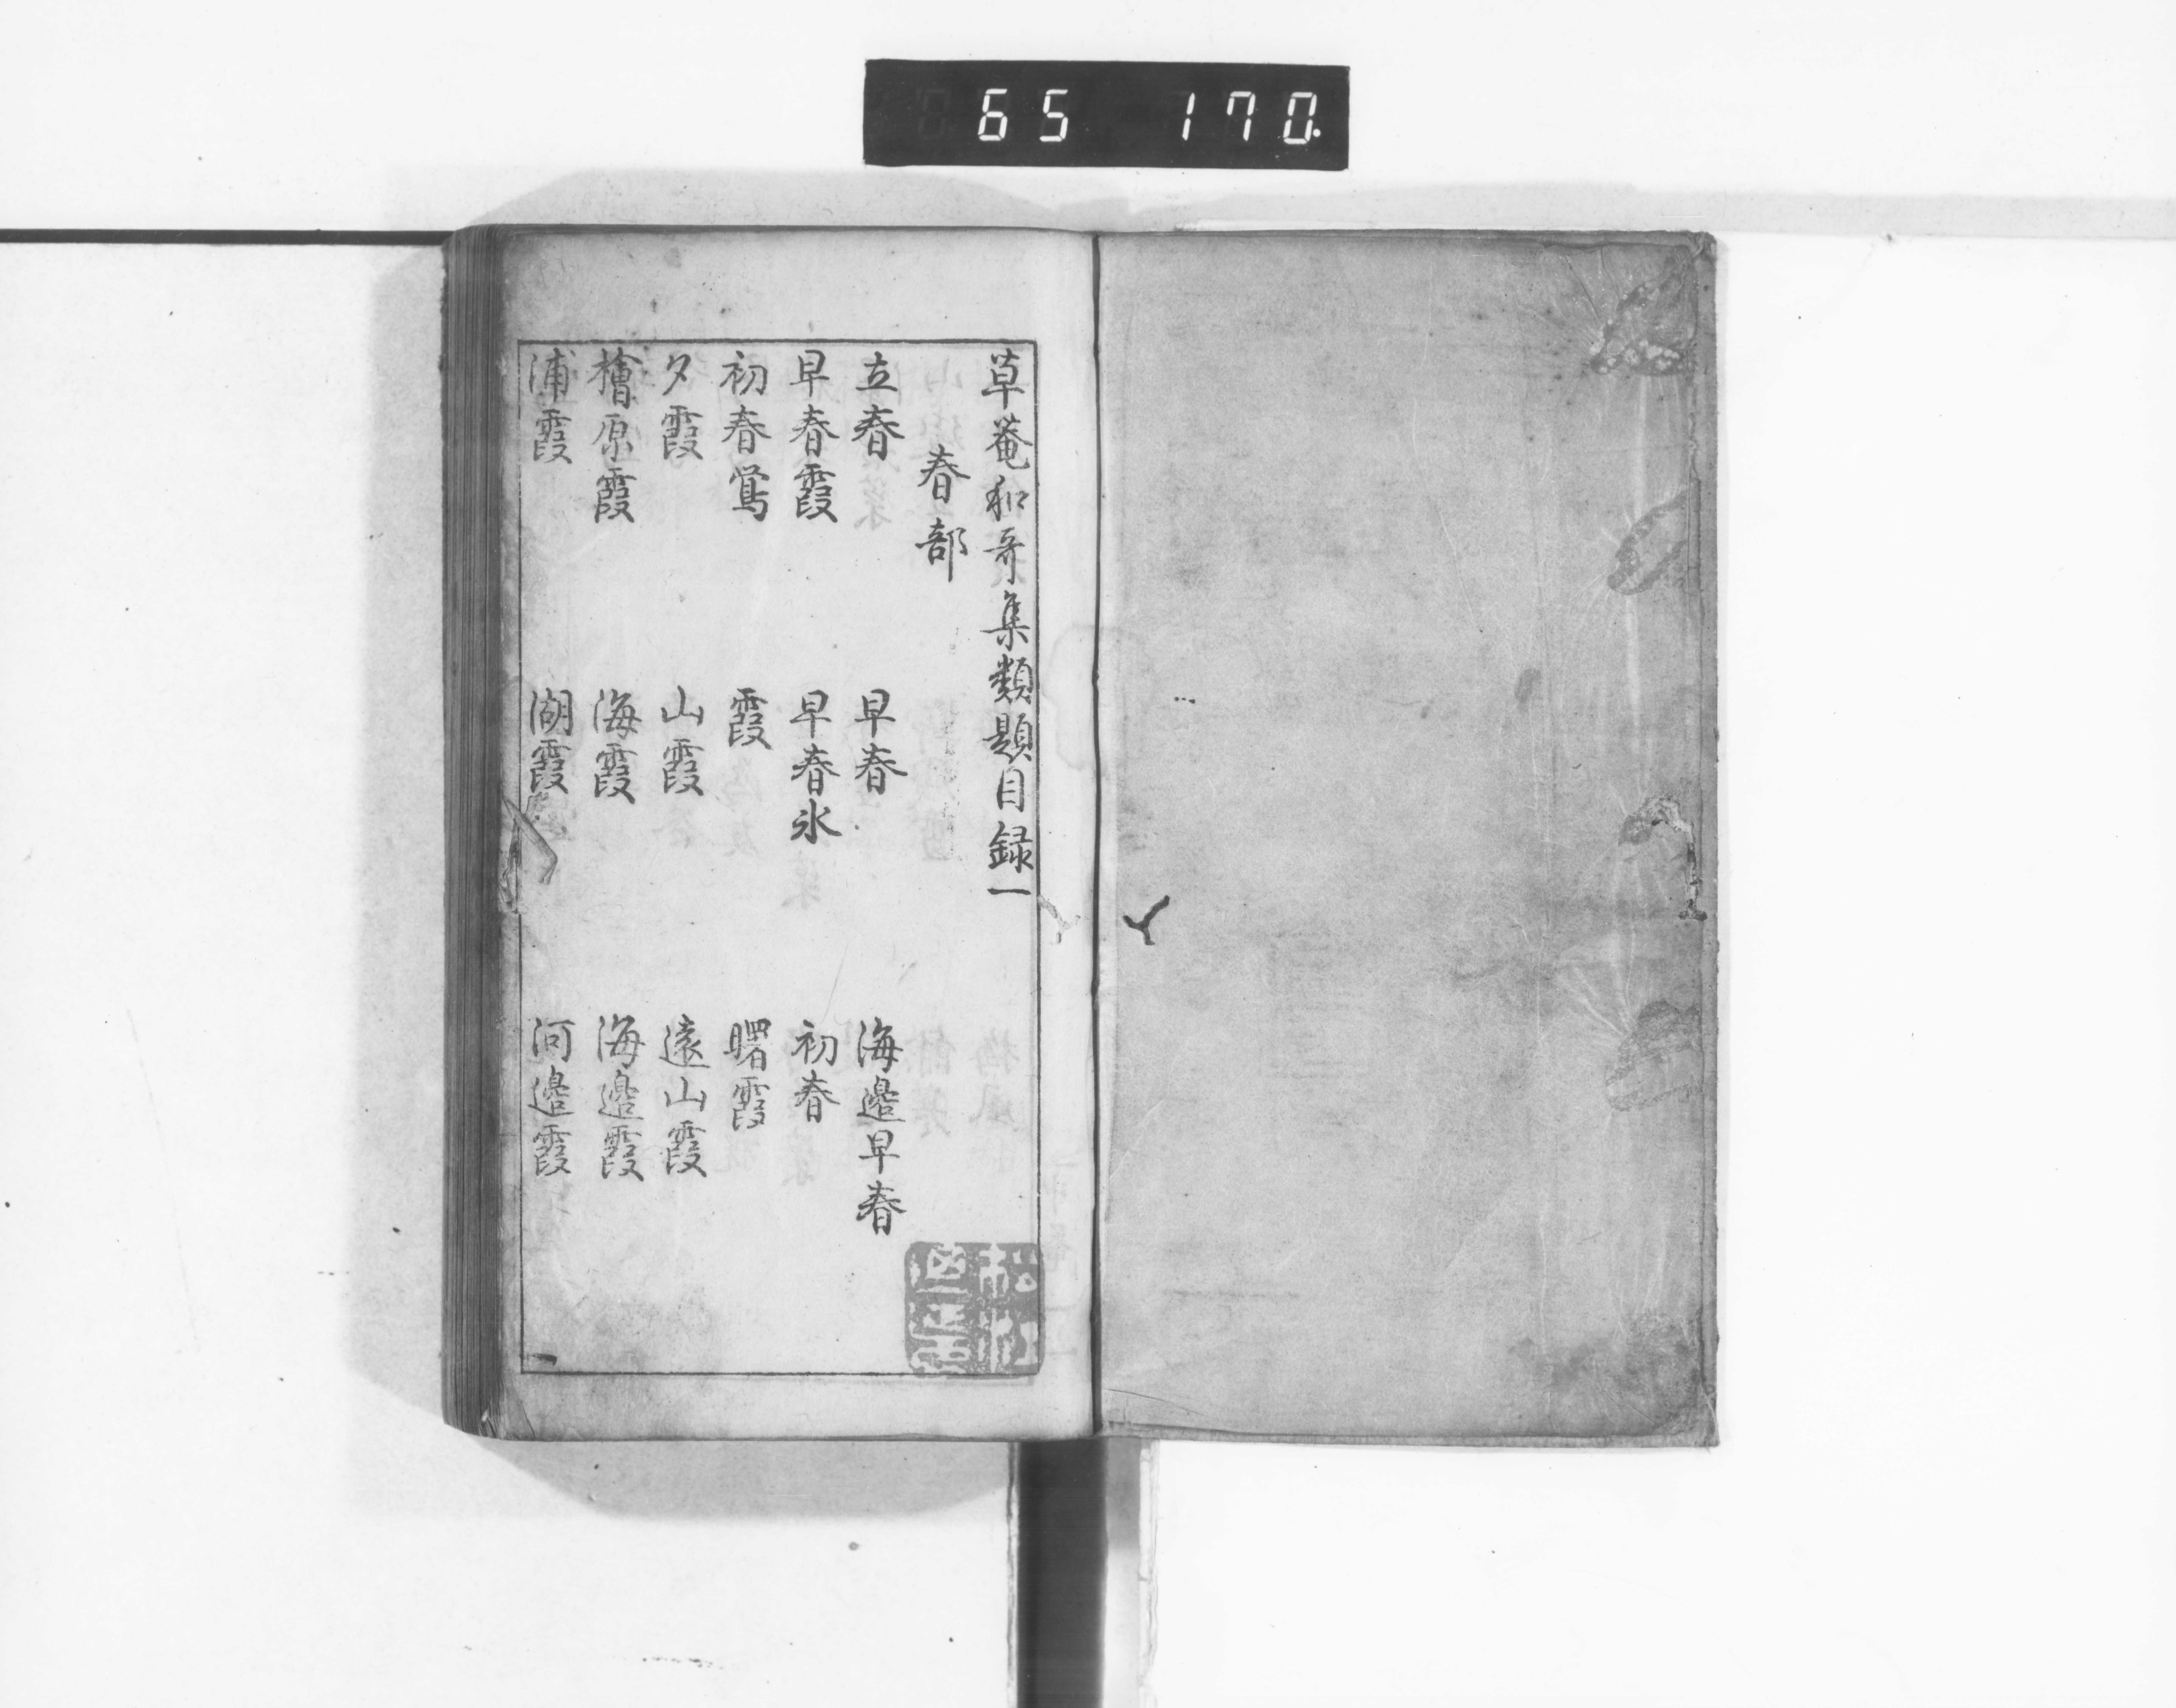 65 170.
草菴和哥集類題目録一
春部
立春 早春 海邉早春
早春霞 早春氷 初春
初春鴬 霞 曙霞
夕霞 山霞 遠山霞
檜原霞 海霞 海邉霞
浦霞 湖霞 河邉霞
一